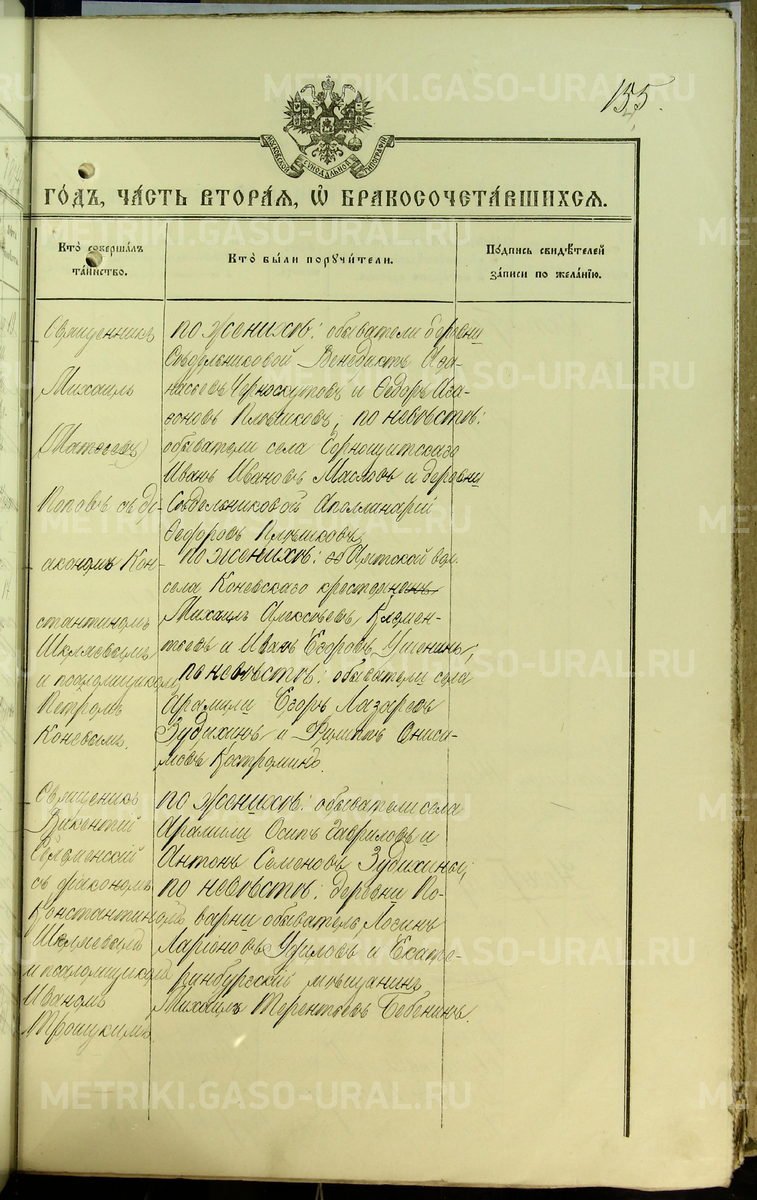 155.
МОСКОВСКОЙ СѴНОДАЛЬНОЙ ТИПОГРАФІИ
ГОДЪ, ЧАСТЬ ВТОРАЯ, Ѡ БРАКОСОЧЕТАВШИХСЯ.
Кто совершалъ таинство.
Кто были поручители.
Подпись свидѣтелей записи по желанію.
Священникъ
Михаилъ
(Матѳеевъ)
Поповъ съ ді-
акономъ Кон-
стантиномъ
Шкляевымъ
и псаломщикомъ
Петромъ
Коневымъ.
по женихѣ: обыватели деревни
Сѣдельниковой Венедиктъ Аѳа-
насьевъ Черноскутовъ и Ѳедоръ Ага-
ѳоновъ Плѣшковъ; по невѣстѣ:
обыватели села Горнощитскаго
Иванъ Ивановъ Масловъ и деревни
Сѣдельниковой Аполлинарій
Ѳедоровъ Плѣшковъ.
по женихѣ: вол.
села Коневскаго
Михаилъ Алексѣевъ Клемен-
тьевъ и Иванъ Егоровъ
по невѣстѣ: обыватели села
Арамили Егоръ Лазаревъ
Зудихинъ и Филиппъ Ониси-
мовъ Костроминъ.
Священникъ
Викентій
съ діакономъ
Константиномъ
Шкляевымъ
и псаломщикомъ
Иваномъ
Троицкимъ.
по женихѣ: обыватели села
Арамили Осипъ Гавриловъ и
Антонъ Семеновъ Зудихины;
по невѣстѣ: деревни По-
варни обыватель Логинъ
Ларіоновъ и Екате-
ринбургскій мѣщанинъ
Михаилъ Терентьевъ Бебенинъ.
METRIKI.GASO-URAL.RU